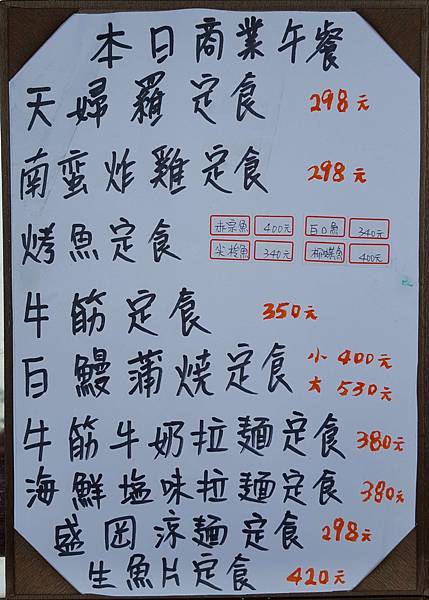 本日商業午餐
天婦羅定食 298元
南蛮炸雞定食 298元
烤魚定食 赤宗魚 400元 白口魚 340元
尖梭魚 340元 柳蝶魚 400元
牛筋定食 350元
白鰻蒲燒定食 小 400元
大 530元
牛筋牛奶拉麵定食 380元
海鮮塩味拉麵定食 380元
盛岡涼麵定食 298元
生魚片定食 420元